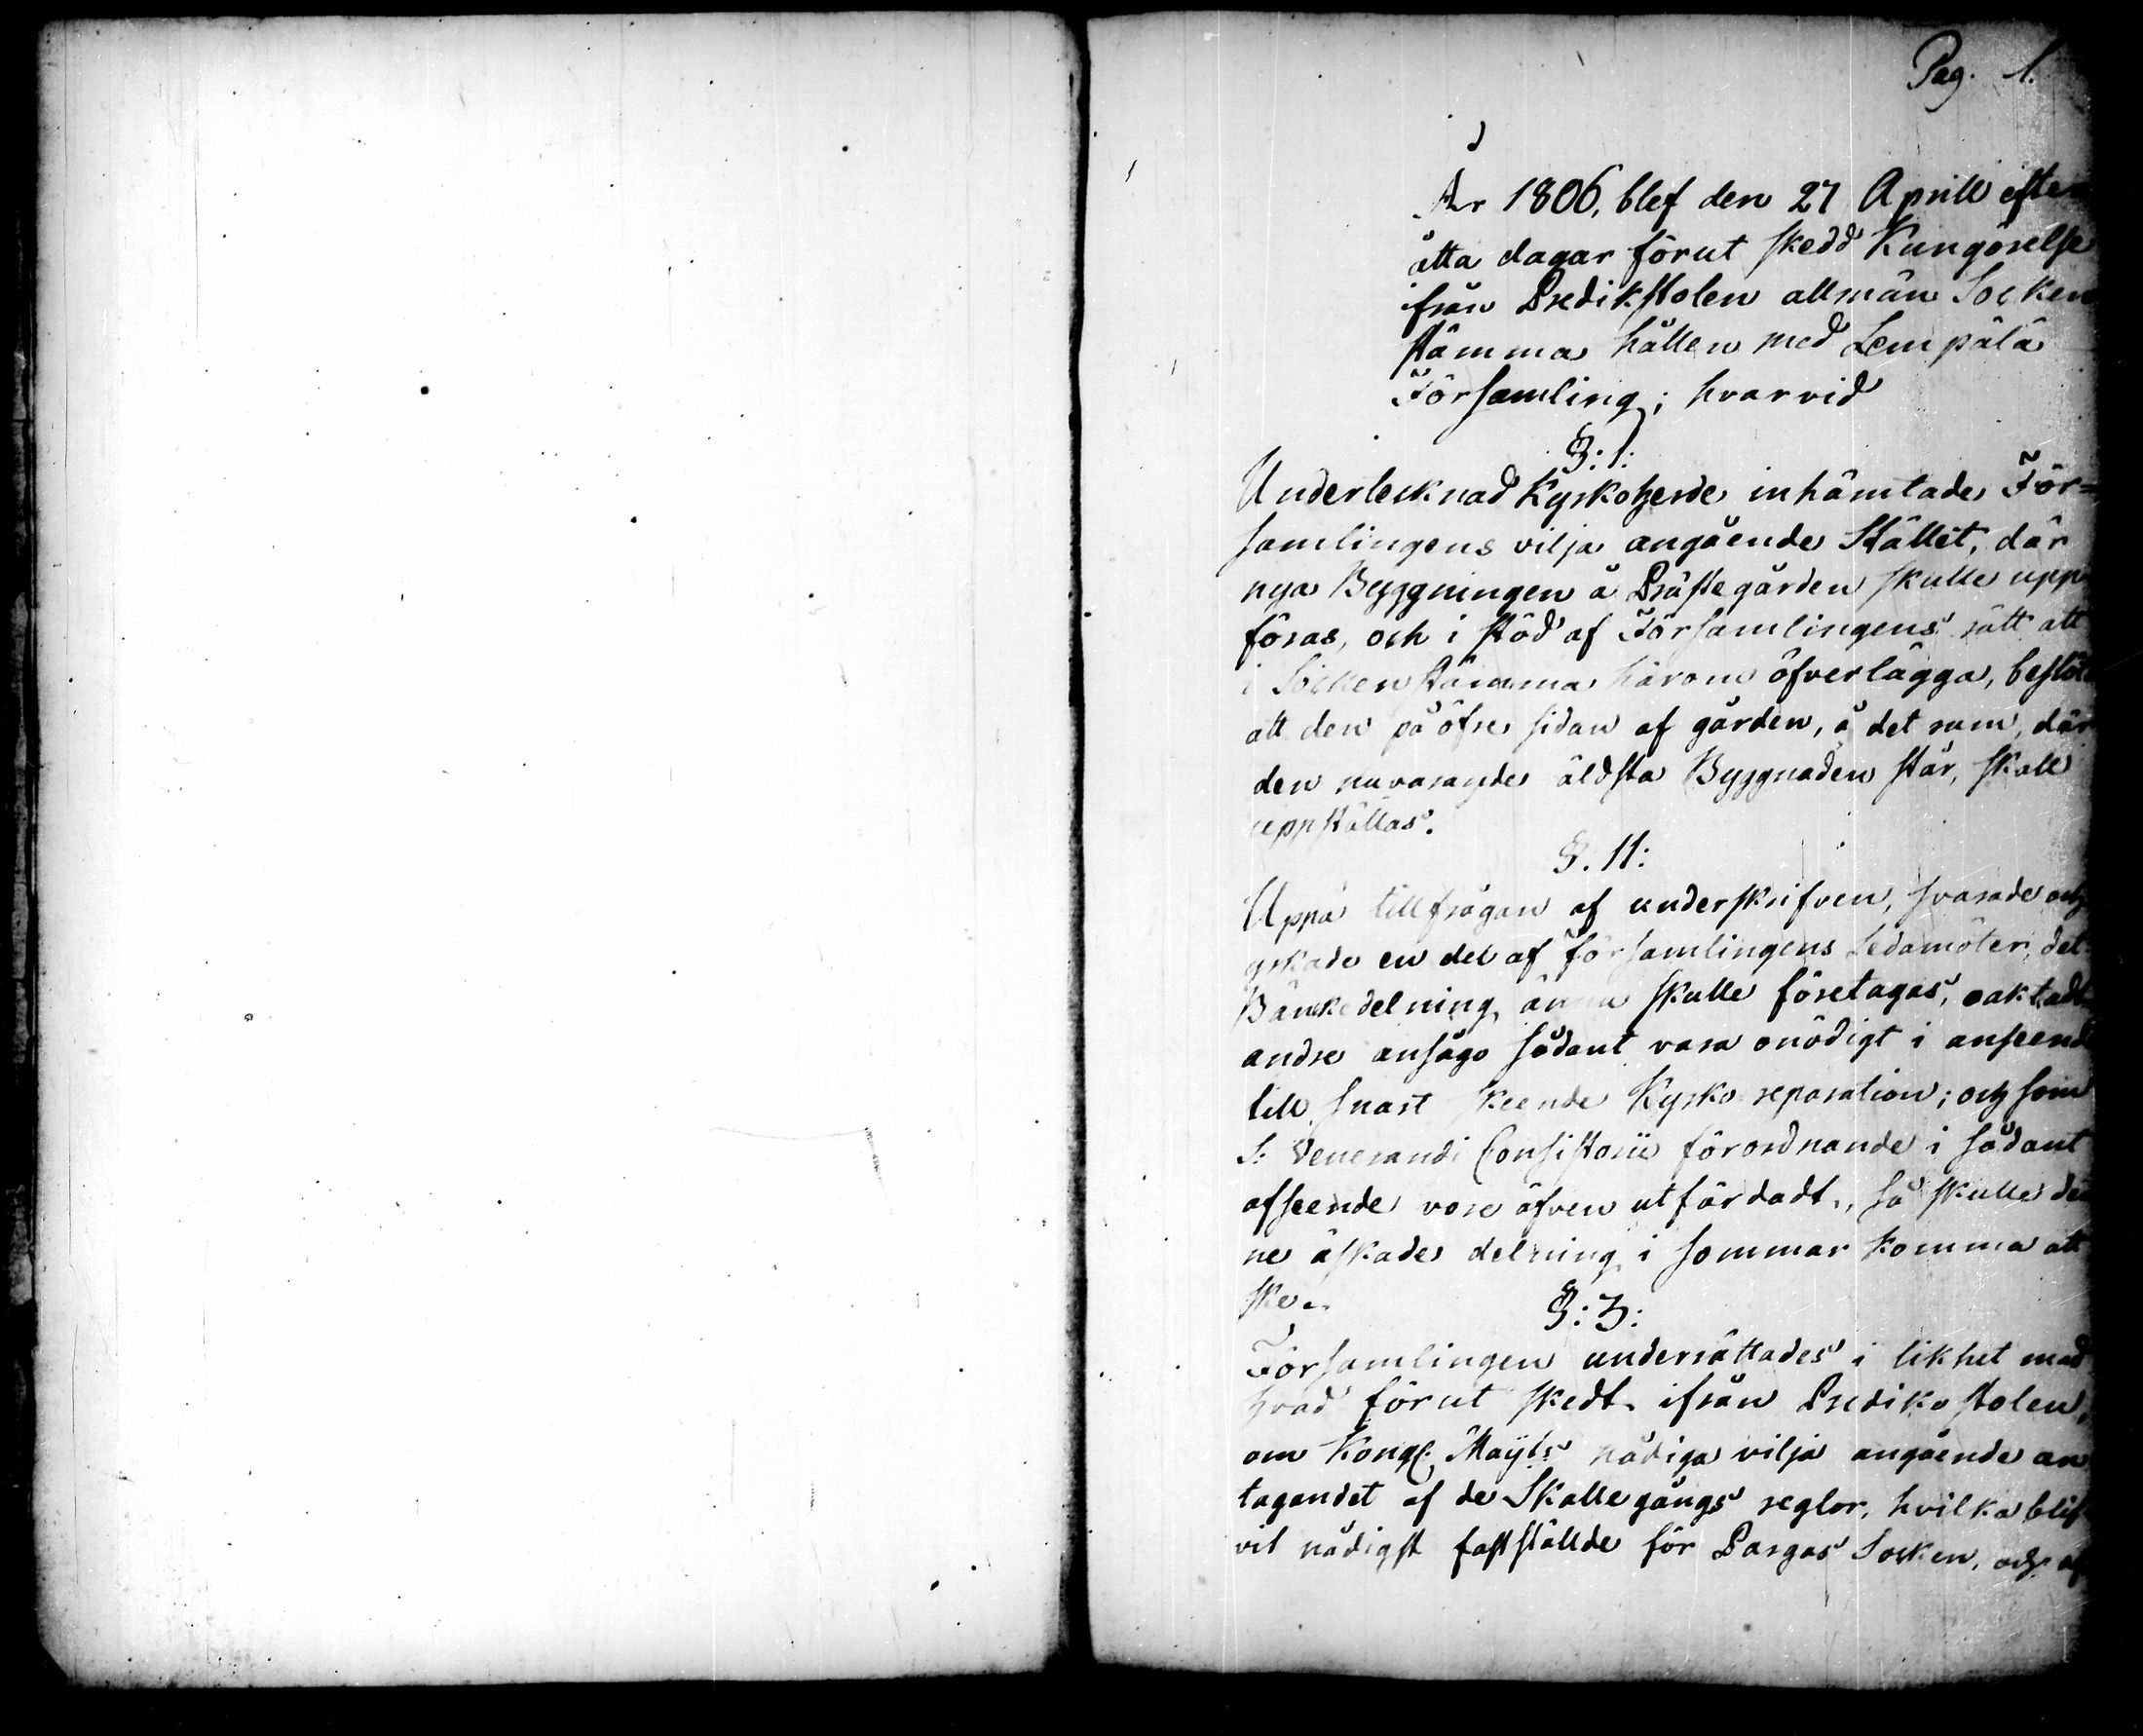 Pag. 1.
År 1806, blef den 27 Aprill efter
åtta dagar förut skedd Kungörelse
ifrån Predikstolen allmän Socken
stämma hållen med Lempälä
Församling; hvarvid
§:1:
Undertecknad Kyrkoherde inhämtade För=
samlingens vilja angående Stället, där
nya Byggningen å Prästegården skulle upp
föras, och i stöd af Församlingens rätt att
i Sockenstämma härom öfverlägga, beslöts
att den på öfre sidan af gården, å det rum, där
den nuvarande äldsta Byggnaden står, skall
uppställas.
§. 11:
Uppå tillfrågan af underskrifven, svarade och
yrkade en del af Församlingens Ledamöter, det
Bänkedelning ännu skulle företagas, oaktadt
andre ansågo sådant vara onödigt i anseende
till snart skeende Kyrko reparation; och som
S: Venerandi Consistorii förordnande i sådant
afseende vore äfven utfärdadt, så skulle den
ne äskade delning i sommar komma att
ske.
§:3:
Församlingen underrättades i likhet med
hvad förut skedt ifrån Predikostolen,
om Kongl: Maÿts nådiga vilja angående an
tagandet af de Skallegångs reglor, hvilka blif
vit nådigst fastställde för Pargas Socken, och af